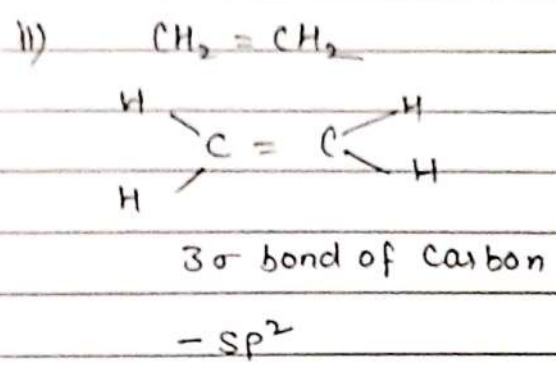 11) CH₂ = CH₂
H H
C = C
H H
3σ bond of Carbon
- sp²